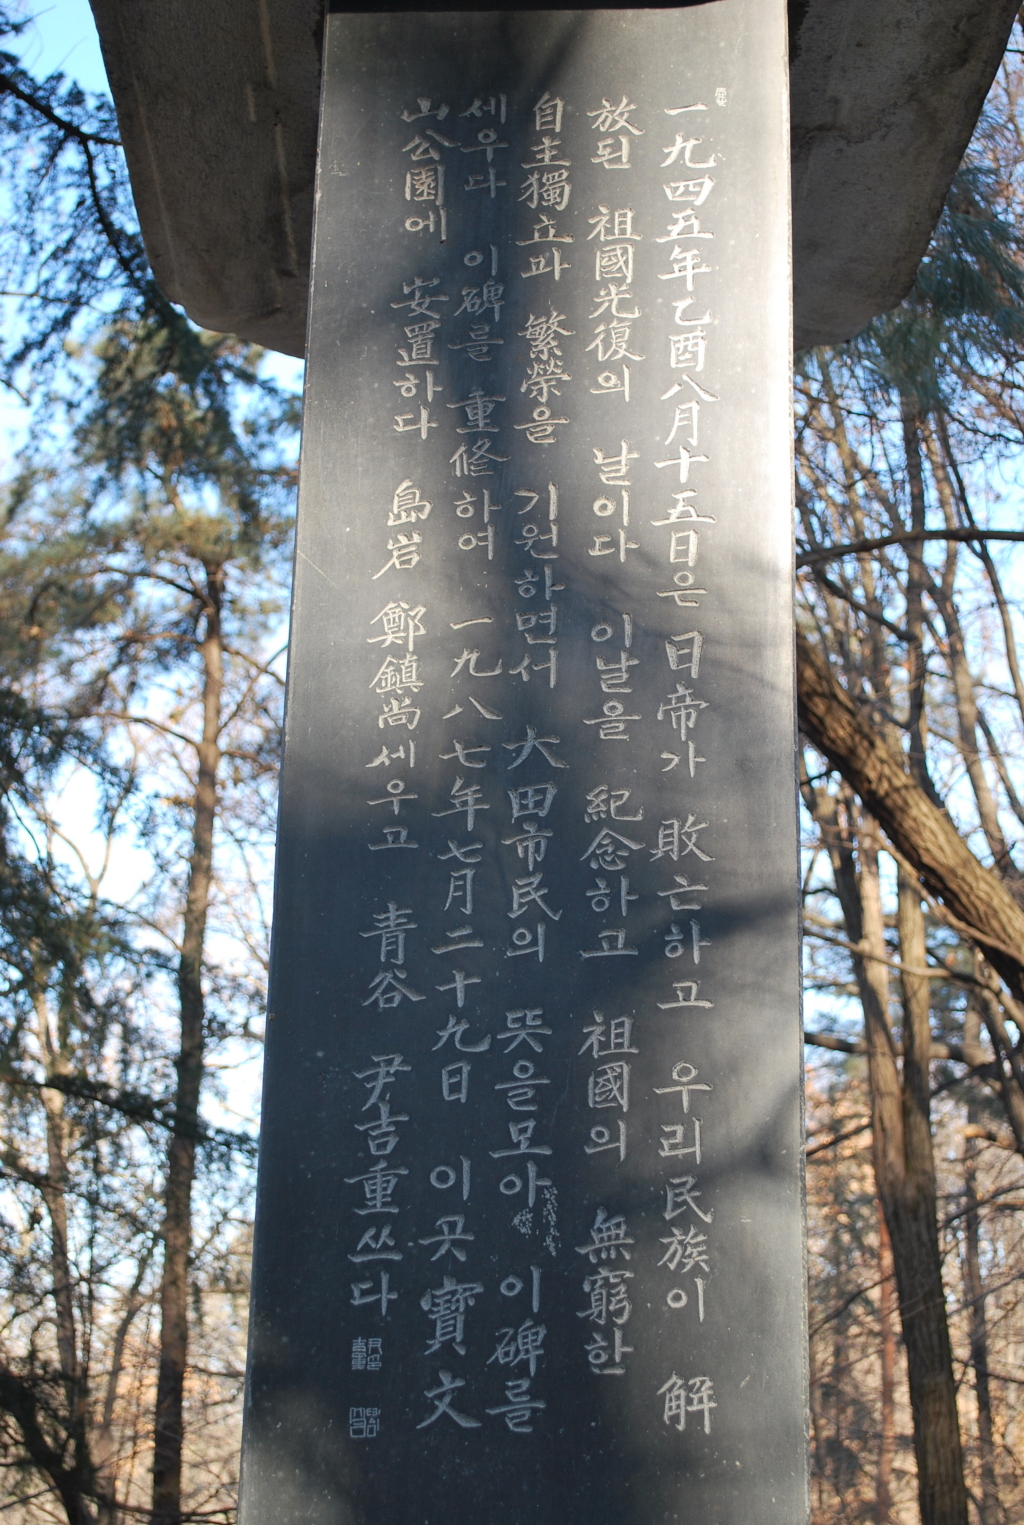 一九四五年乙酉八月十五日은 日帝가 敗亡하고 우리民族이 解
放된 祖國光復의 날이다 이날을 紀念하고 祖國의 無窮한
自主獨立과 繁榮을 기원하면서 大田市民의 뜻을모아 이碑를
세우다 이碑를 重修하여 一九八七年七月二十九日 이곳寶文
山公園에 安置하다 島岩 鄭鎮尚세우고 青谷 尹吉重쓰다